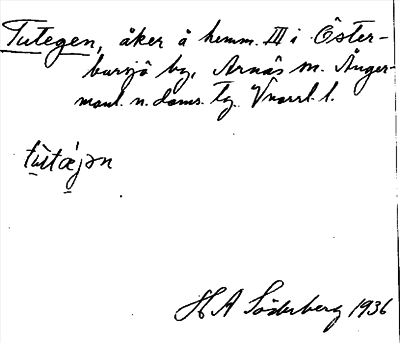 Tutegen, åker å hemm. III i Öster-
bursjö by, Arnäs sn. Ånger-
manl. n. doms. tg. Vnorrl. l.
tùtǽjən
H A Söderberg 1936